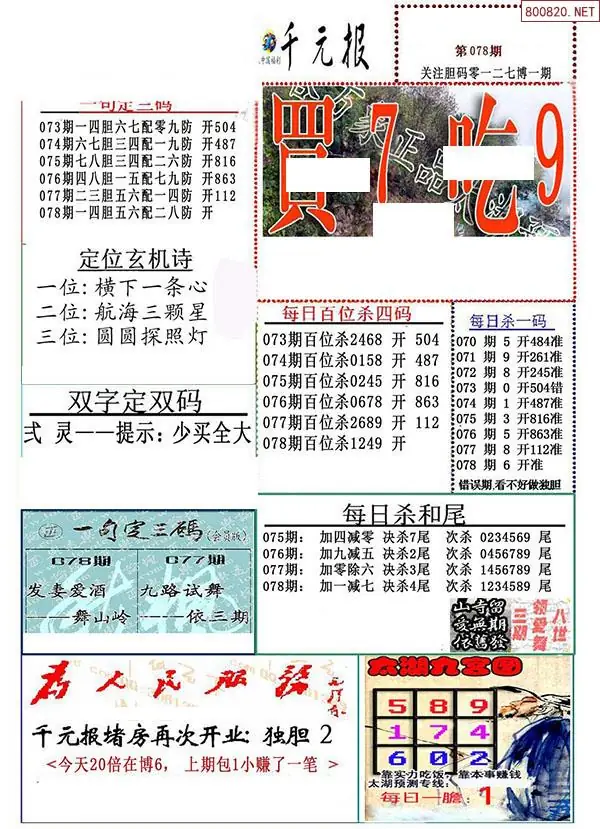 800820.NET
千元报
第078期
关注胆码零一二七博一期
一句定三码
073期一四胆六七配零九防 开504
074期六七胆三四配一九防 开487
075期七八胆三四配二六防 开816
076期四八胆一五配七九防 开863
077期二三胆五六配一四防 开112
078期一四胆五六配二八防 开
買7吃9
定位玄机诗
一位:横下一条心
二位:航海三颗星
三位:圆圆探照灯
每日百位杀四码
073期百位杀2468 开 504
074期百位杀0158 开 487
075期百位杀0245 开 816
076期百位杀0678 开 863
077期百位杀2689 开 112
078期百位杀1249 开
每日杀一码
070 期 5 开484准
071 期 9 开261准
072 期 8 开245准
073 期 0 开504错
074 期 1 开487准
075 期 3 开816准
076 期 5 开863准
077 期 8 开112准
078 期 6 开准
错误期,看不好做独胆
双字定双码
弍 灵——提示:少买全大
每日杀和尾
075期: 加四减零 决杀7尾 次杀 0234569 尾
076期: 加九减五 决杀2尾 次杀 0456789 尾
077期: 加零除六 决杀3尾 次杀 1456789 尾
078期: 加一减七 决杀4尾 次杀 1234589 尾
一句定三碼(会员版)
078期 077期
发妻爱酒 九路试舞
————舞山岭 ————依三期
山寺留
愛無期
依舊發
八世
领爱舞
三期
為人民服務
千元报堵房再次开业: 独胆 2
<今天20倍在博6, 上期包1小赚了一笔 >
太湖九宫图
5 8 9
1 7 4
6 0 2
靠实力吃饭,靠本事赚钱
太湖预测专线:
每日一胆: 1